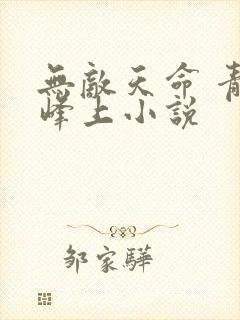 無敵天命 青
峰上小說
鄒家驊